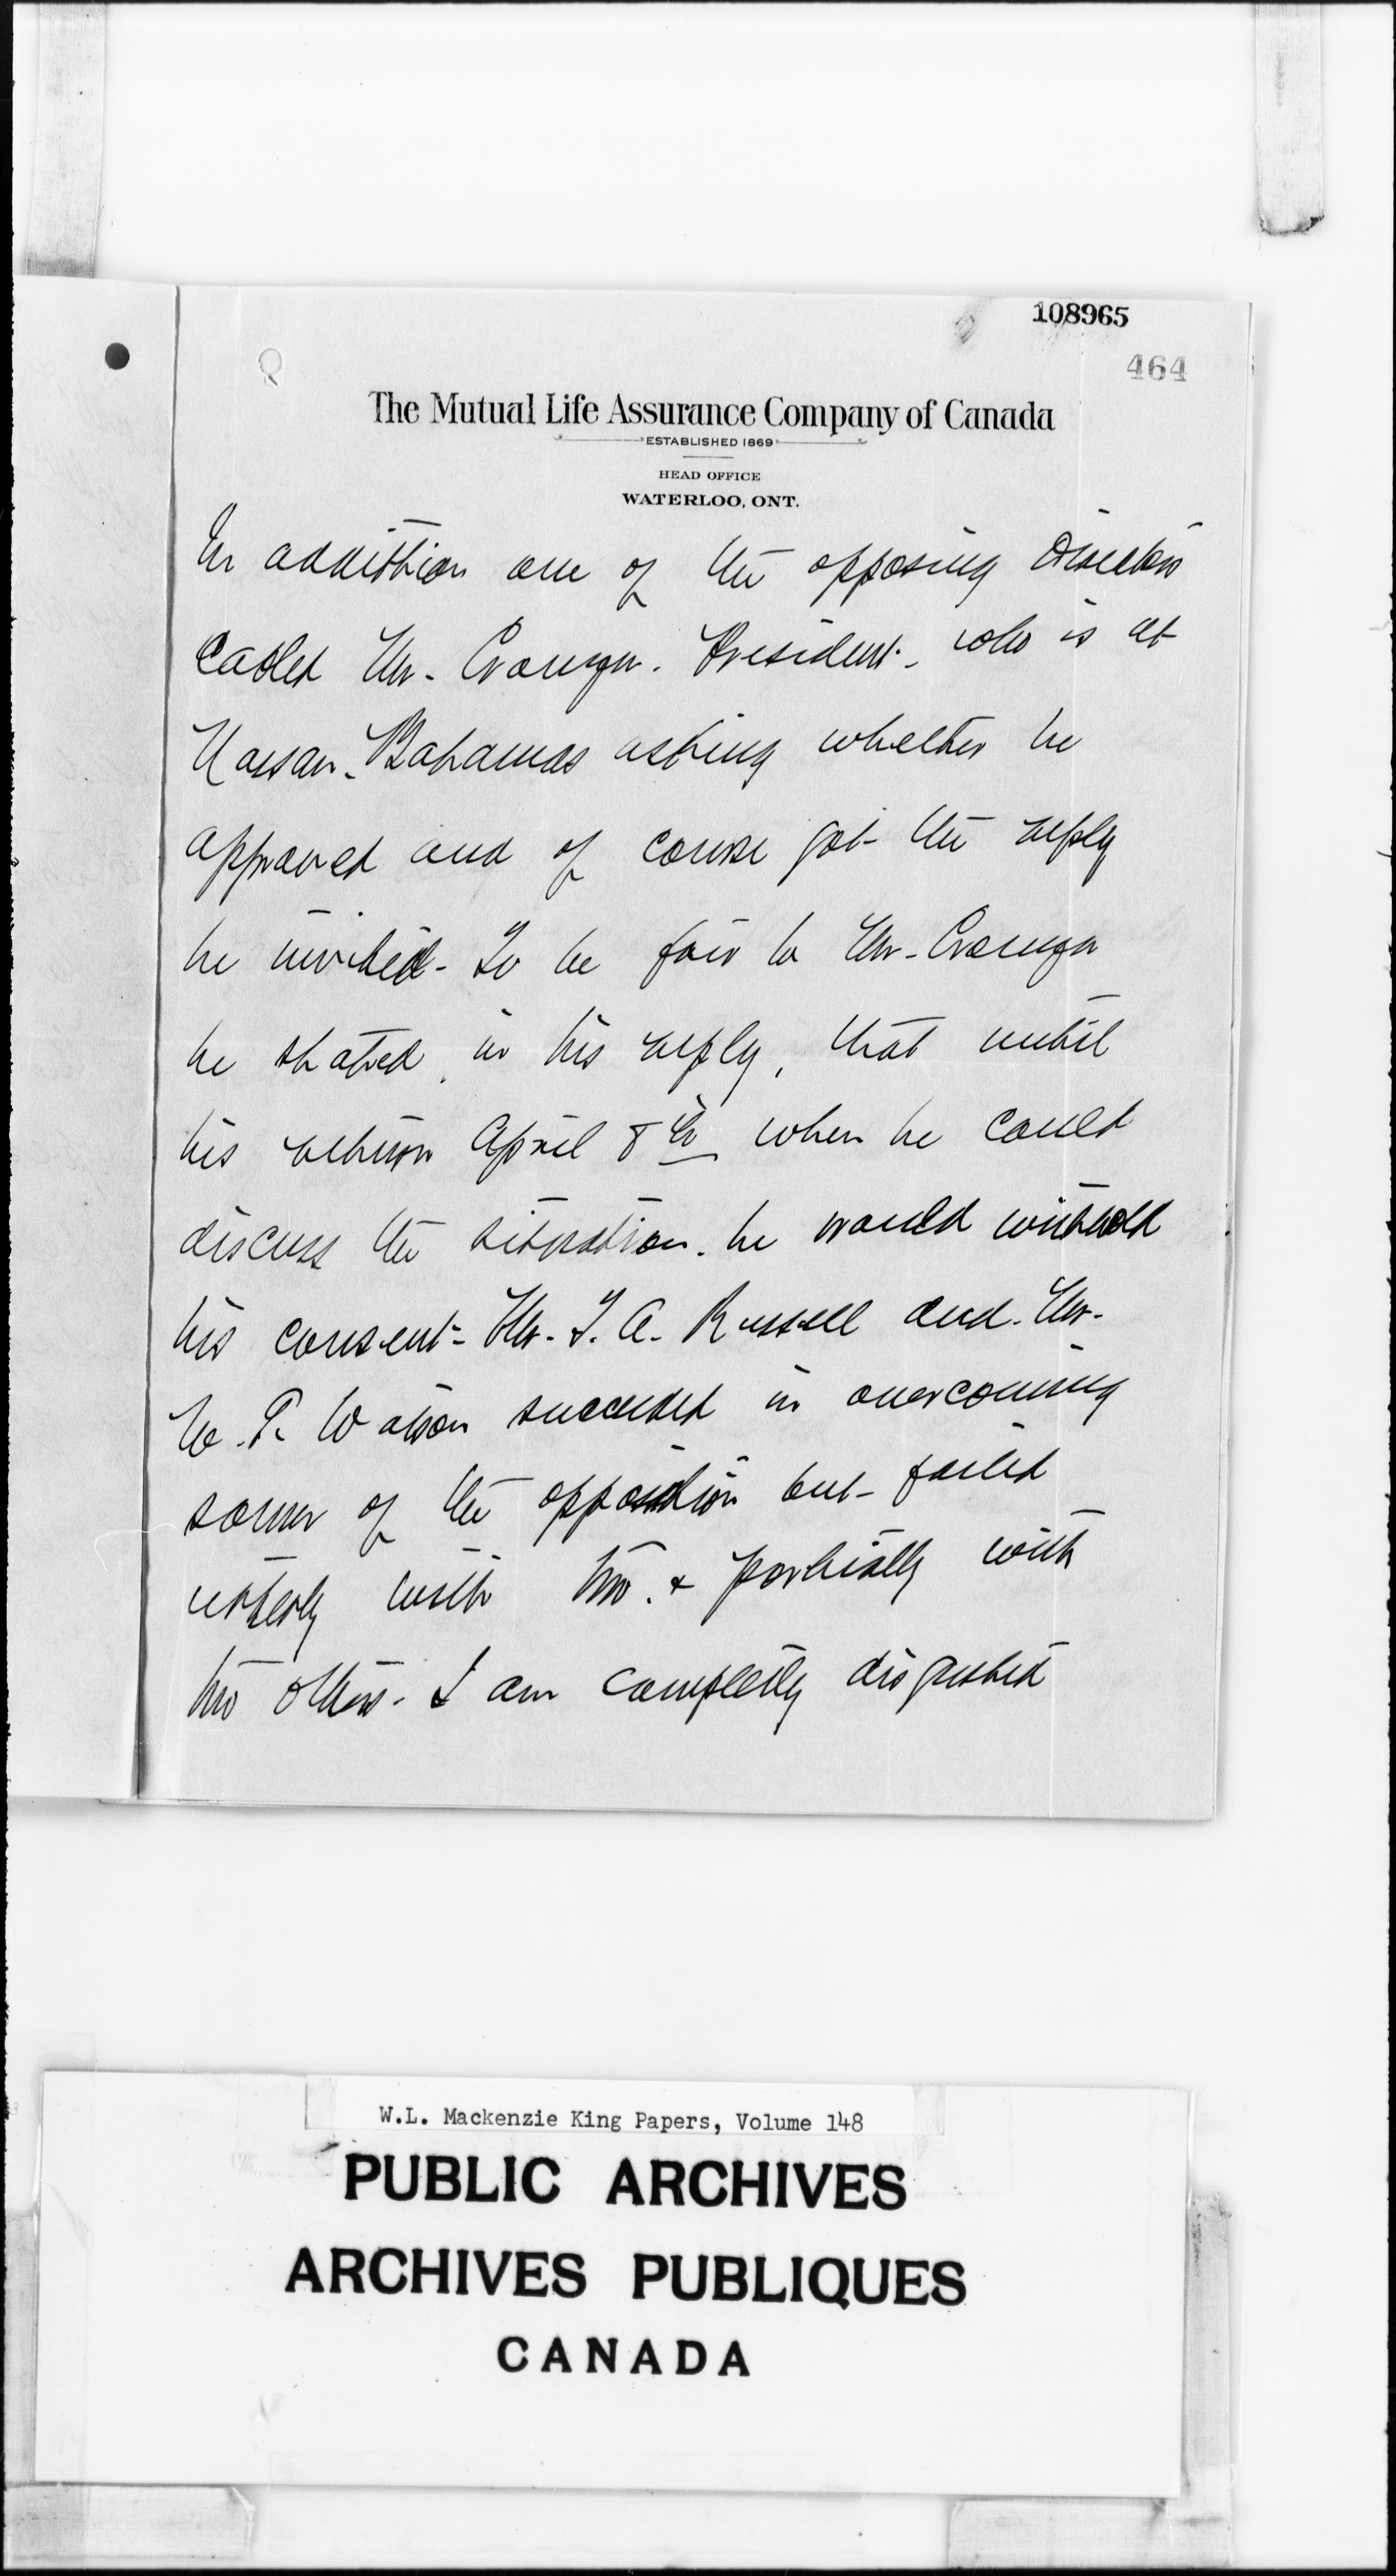 108965
464
The Mutual Life Assurance Company of Canada
ESTABLISHED 1869
HEAD OFFICE
WATERLOO, ONT.
In addition one of the opposing Directors
cabled Mr. Cromyn. President. who is at
Nassau. Bahamas asking whether he
approved and of course got the reply
he invited. To be fair to Mr. Cromyn
he stated, in his reply, that until
his return April 8th when he could
discuss the situation. he would withold
his consent. Mr. T. A. Russell and. Mr.
W. P. Watson succeeded in overcoming
some of the opposition but failed
utterly with two. & partially with
two others. I am completly disgusted
W.L. Mackenzie King Papers, Volume 148
PUBLIC ARCHIVES
ARCHIVES PUBLIQUES
CANADA